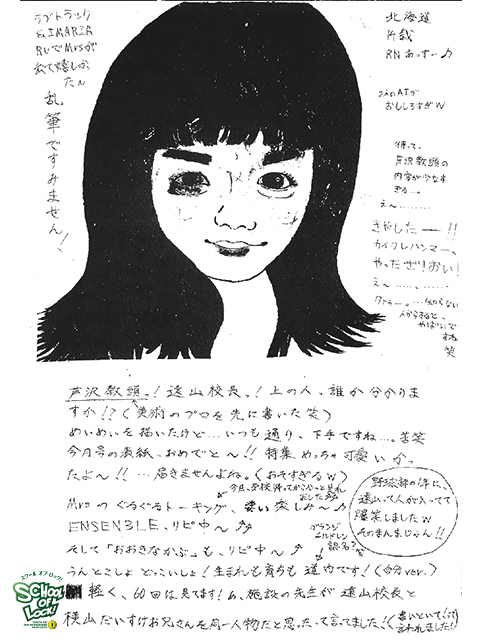 ラブトラック
&IMARIA
RNでMrsが
出て嬉しかっ
たぃ
乱筆ですみません!
北海道
片栽
RN あっすー♪
2人のAIが
おもしろすぎw
待って、
芦沢教頭の
内容が少なす
ぎる…
え〜………
きやしたー!!
カイリレハンマー、
やったぜ!おい!
え〜……、……
知らない
人からすると、
やばいで
すね
笑
芦沢教頭っ!遠山校長っ!上の人、誰か分かりま
すか!?(美術のプロを先に書いた笑)
めいめいを描いたけど…いつも通り、下手ですね…。苦笑
今月号の表紙、おめでと〜!!特集、めっちゃ可愛いかっ
たよ〜!!…届きませんよね。(おそすぎるw)
今日、学校帰ってからやっと見れ
ました
Mrsのぐるぐるトーキング、楽しみ〜♪
ENSEMBLE、リピ中〜♪
そして「おおきなかぶ」も、リピ中〜♪
うんとこしょどっこいしょ!生まれも育ちも道内です!(自分ver.)
軽く、60回は見てます!あ、施設の先生が遠山校長と
横山だいすけお兄さんを同一人物だと思ったって言ってました、(書いといてって
言われました!)
野球部の件に、
遠山って人が入ってて
爆笑しましたw
そのまんまじゃん!!
スクール オブ ロック!
SCHOOL OF LOCK!